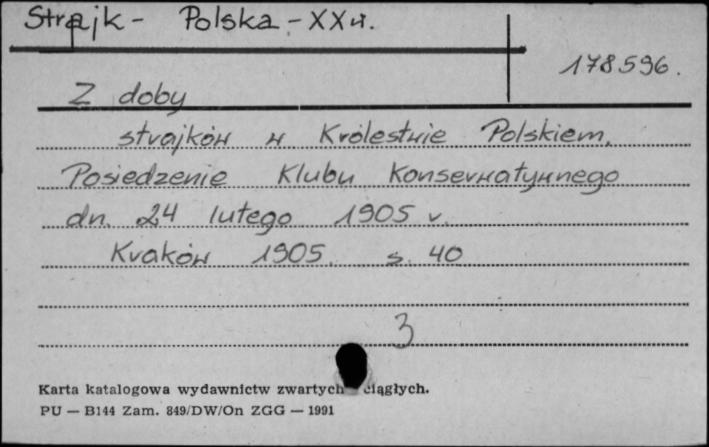 Strajk - Polska - XX w.
178596.
Z doby
strajków w Królestwie Polskiem.
Posiedzenie Klubu Konserwatywnego
dn. 24 lutego 1905 r.
Kraków 1905. s. 40
3
Karta katalogowa wydawnictw zwartych ciągłych.
PU — B144 Zam. 849/DW/On ZGG — 1991